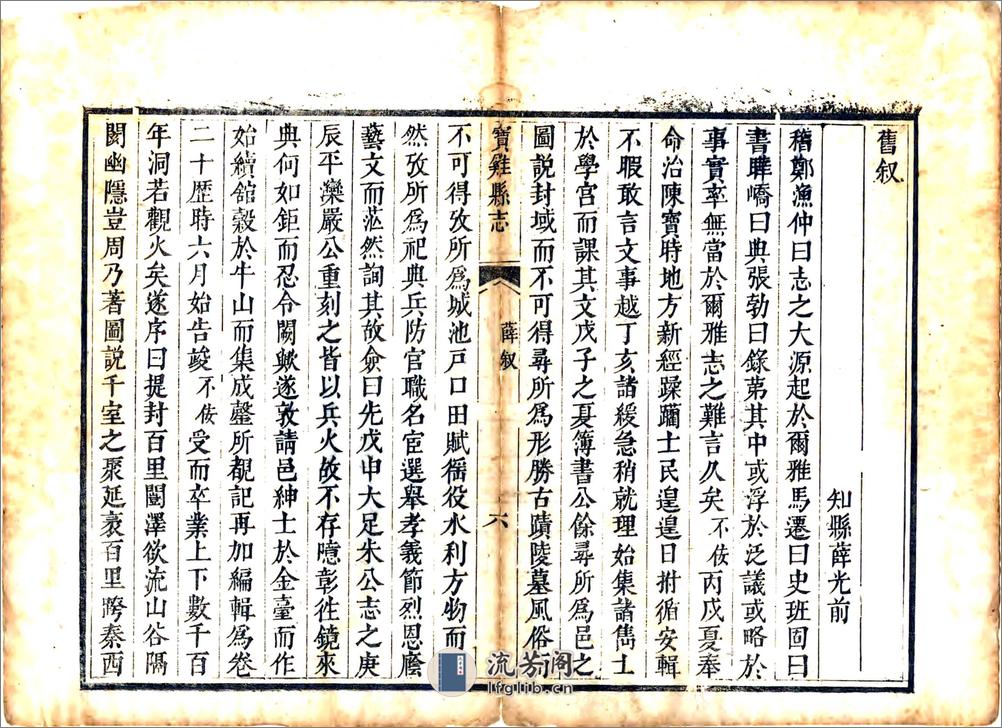 舊叙
知縣薛光前
稽鄭漁仲曰志之大源起於爾雅馬遷曰史班固曰
書曄嶠曰典張勃曰錄第其中或浮於泛議或略於
事實率無當於爾雅志之難言久矣不佞丙戊夏奉
命治陳寶時地方新經蹂躪士民遑遑日拊循安輯
不暇敢言文事越丁亥諸緩急稍就理始集諸雋士
於學宫而課其文戊子之夏簿書公餘尋所爲邑之
圖説封域而不可得尋所爲形勝古蹟陵墓風俗
寶雞縣志
薛叙
六
不可得攷所爲城池戸口田賦徭役水利方物而
然攷所爲祀典兵防官職名宦選舉孝義節烈恩廕
藝文而茫然詢其故僉曰先戊申大足朱公志之庚
辰平灤嚴公重刻之皆以兵火故不存噫彰徃鏡來
典何如鉅而忍令闕歟遂敦請邑紳士於金臺而作
始續舘穀於牛山而集成罄所覩記再加編輯爲卷
二十歷時六月始告竣不佞受而卒業上下數千百
年洞若觀火矣遂序曰提封百里闓澤欲流山谷隔
閡幽隱豈周乃著圖説千室之聚延袤百里跨秦西
流芳阁
lfglib.cn